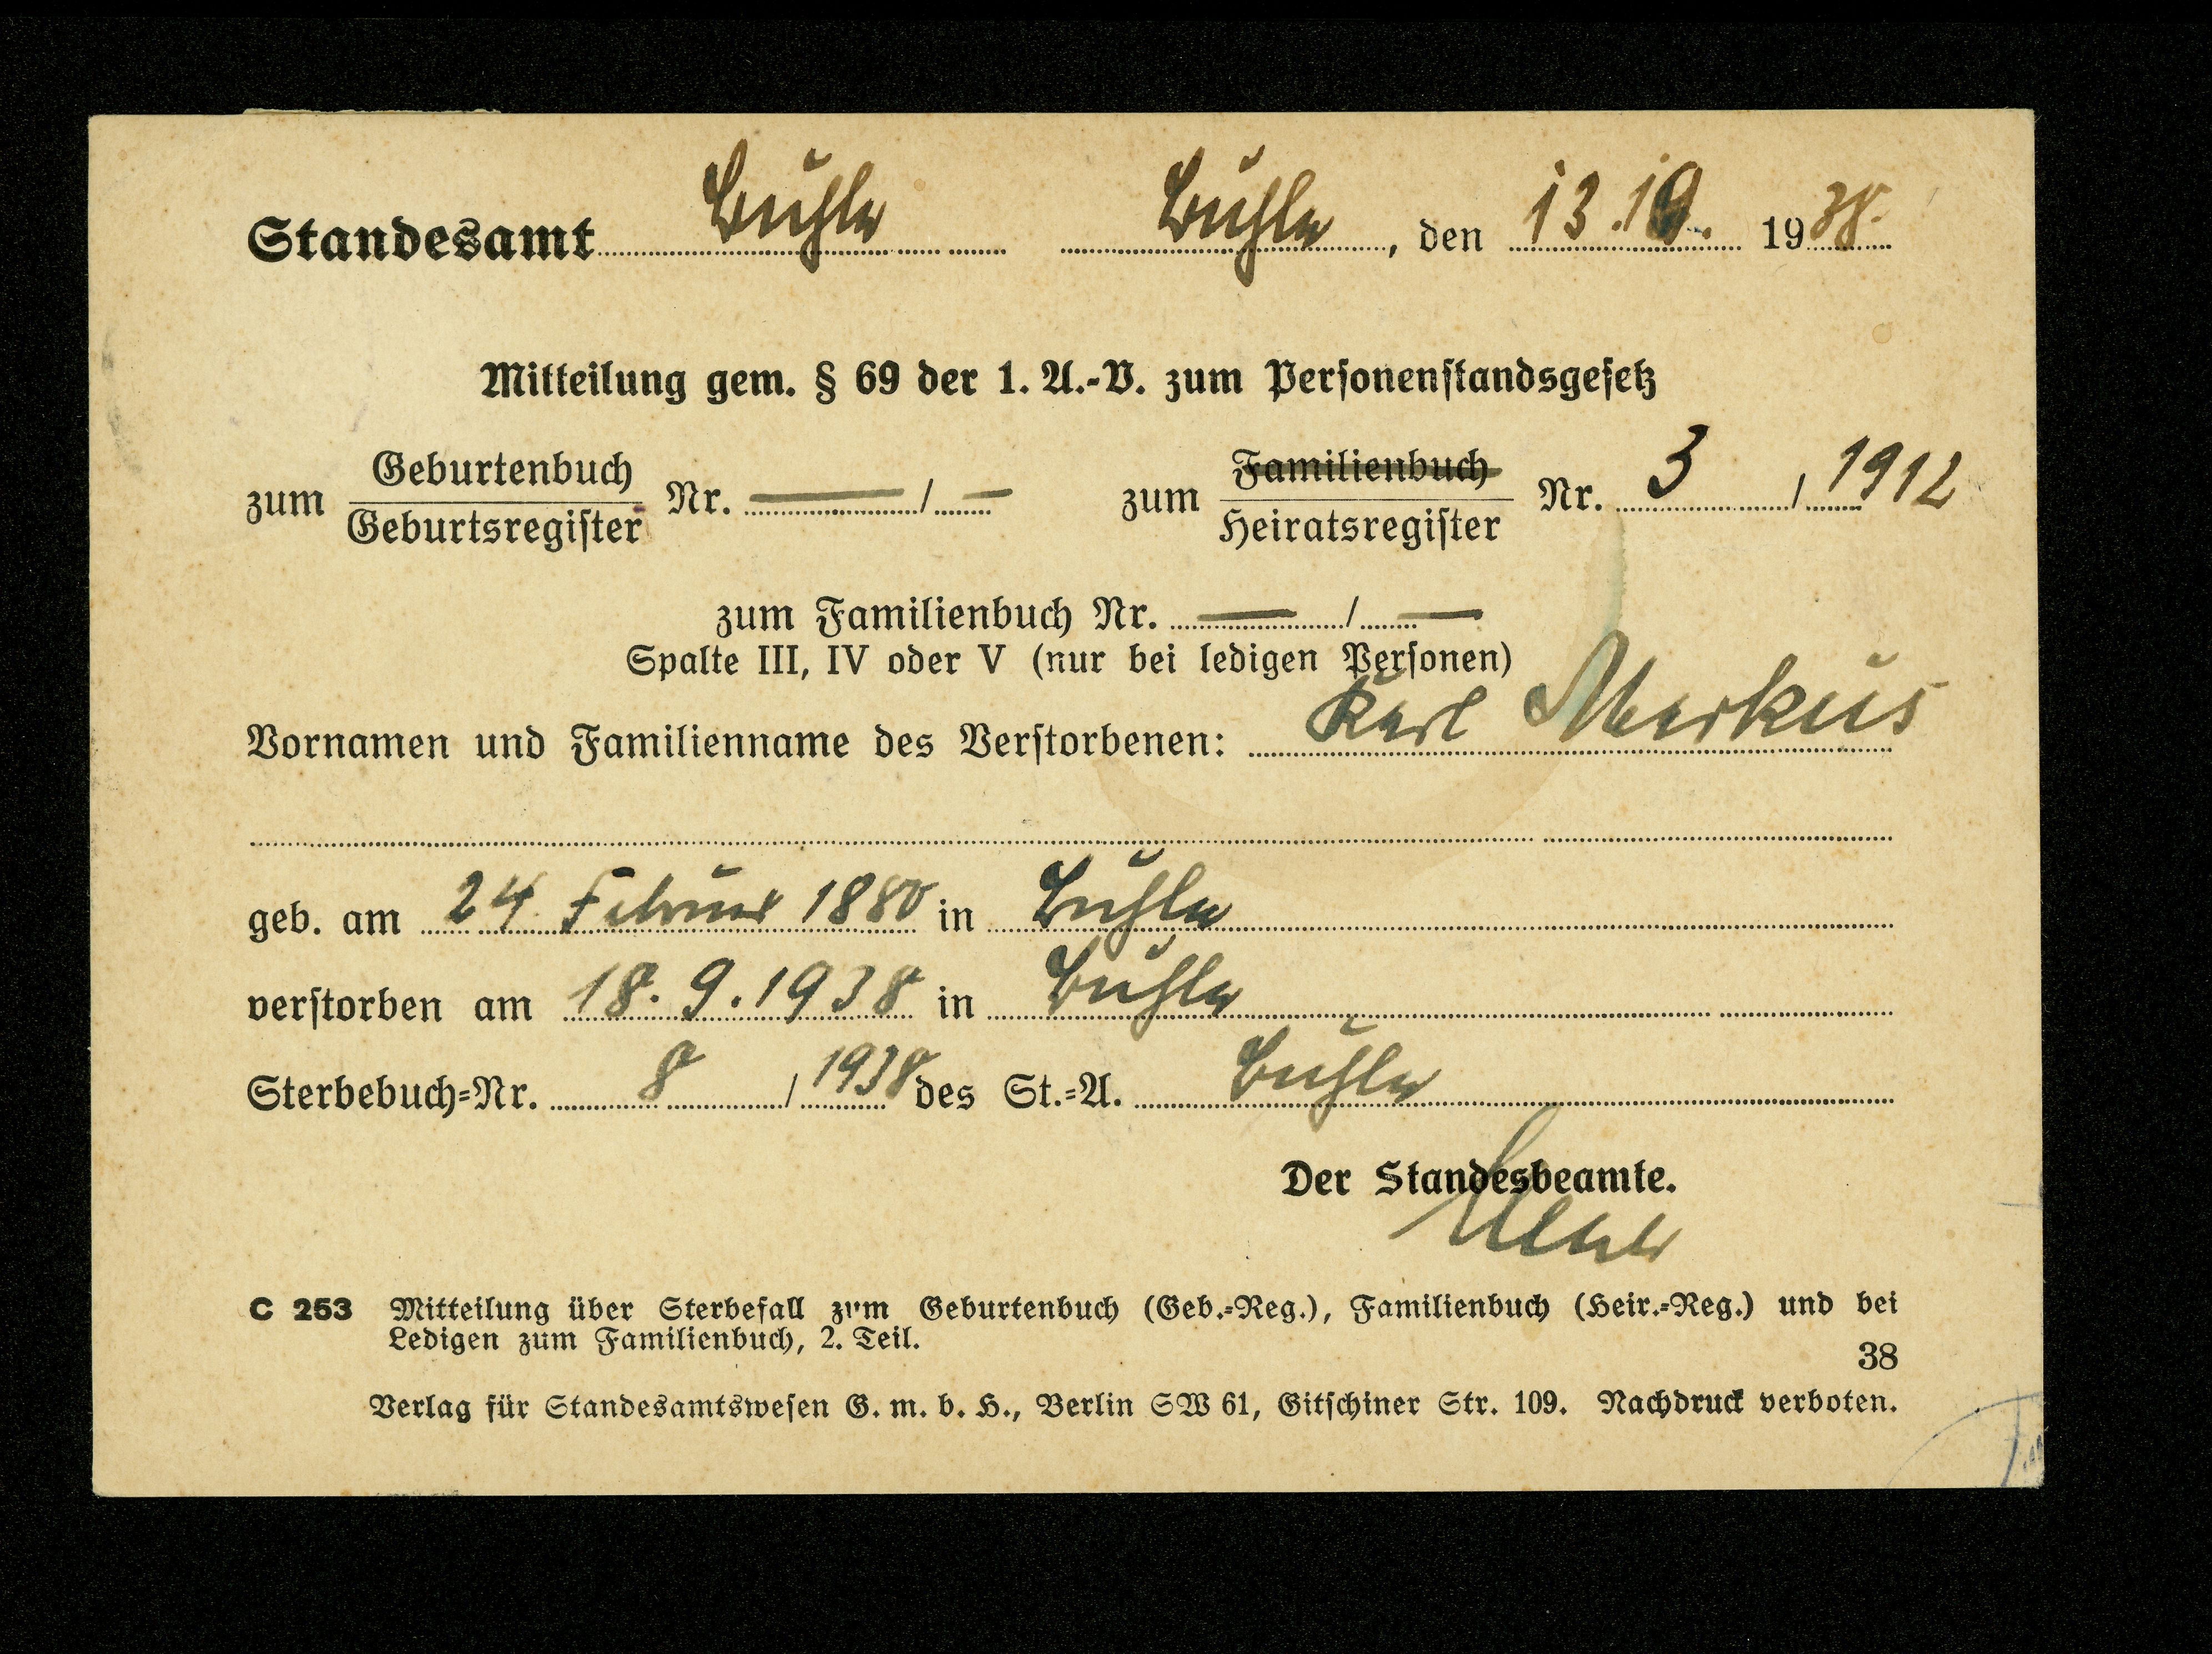 Standesamt Buhla Buhla, den 13.10. 1938.
Mitteilung gem. § 69 der 1. A.-V. zum Personenstandsgesetz
zum Geburtenbuch Nr. — / — zum Familienbuch Nr. 3 / 1912
Geburtsregister Heiratsregister
zum Familienbuch Nr. — / —
Spalte III, IV oder V (nur bei ledigen Personen)
Vornamen und Familienname des Verstorbenen: Karl Markus
geb. am 24. Februar 1880 in Buhla
verstorben am 18. 9. 1938 in Buhla
Sterbebuch-Nr. 8 / 1938 des St.-A. Buhla
Der Standesbeamte.
C 253 Mitteilung über Sterbefall zum Geburtenbuch (Geb.-Reg.), Familienbuch (Heir.-Reg.) und bei
Ledigen zum Familienbuch, 2. Teil.
38
Verlag für Standesamtswesen G. m. b. H., Berlin SW 61, Gitschiner Str. 109. Nachdruck verboten.